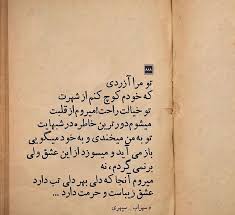 تو مرا آزردی
که خودم کوچ کنم از شهرت
تو خیالت راحت! میروم از قلبت
میشوم دورترین خاطره در شبهایت
تو به من میخندی و به خود میگویی
باز می آید و میسوزد از این عشق ولی
برنمی گردم ، نه
میروم آنجا که دلی بهر دلی تب دارد
عشق زیباست و حرمت دارد ...
سهراب سپهری